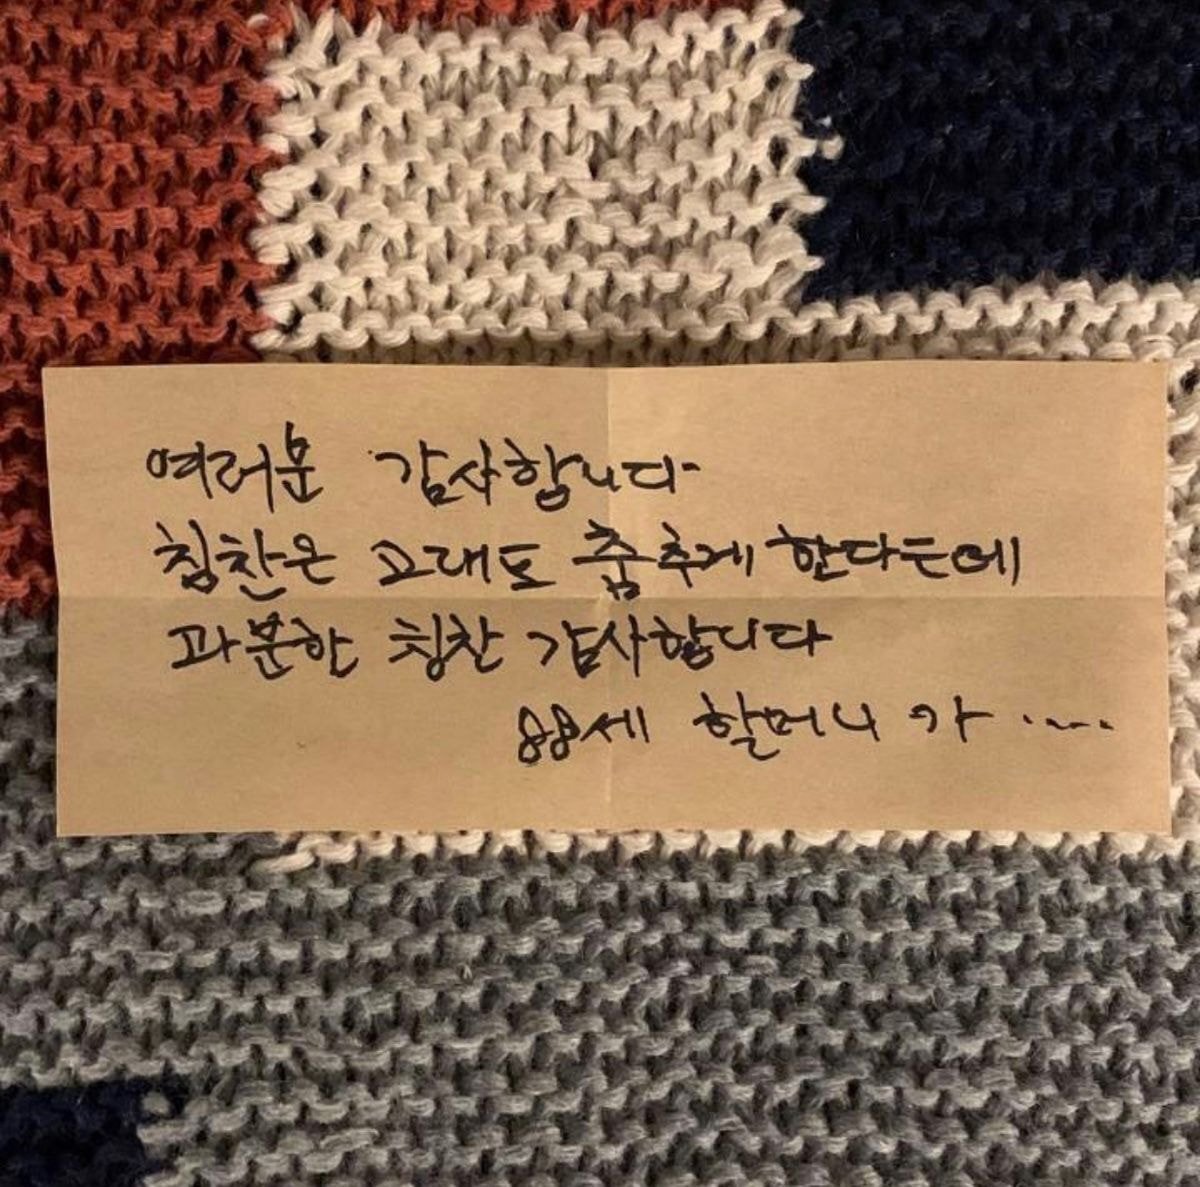 여러분 감사합니다
칭찬은 고래도 춤추게 한다는데
과분한 칭찬 감사합니다
88세 할머니가 .....